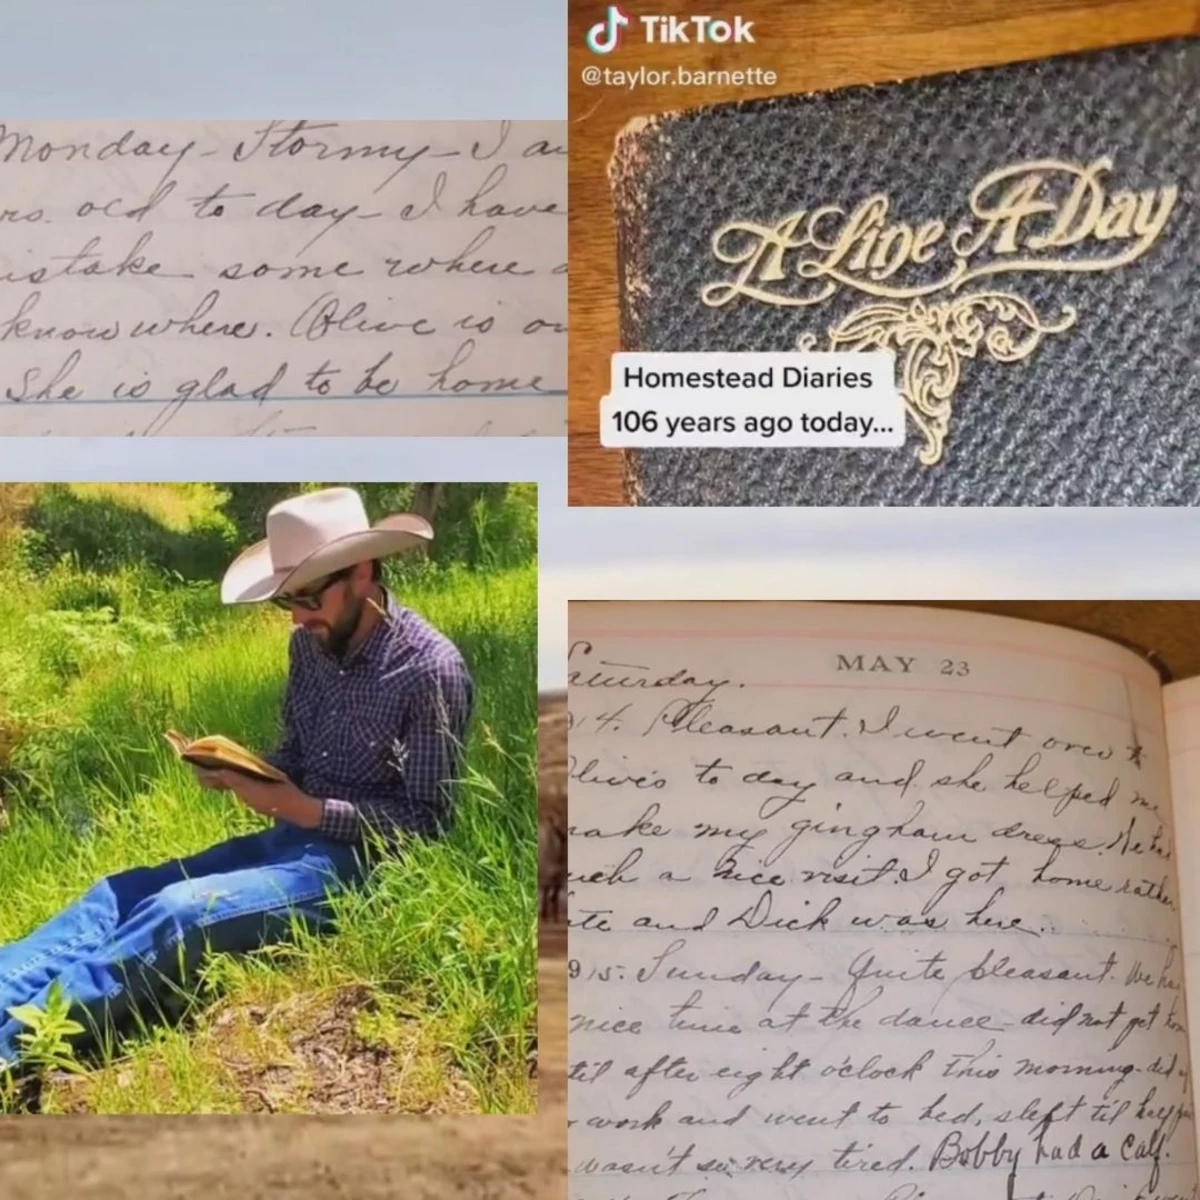 Monday - Stormy - I a
rs. old to day - I have
istake some where
know where. Olive is o
She is glad to be home
TikTok
@taylor.barnette
A Line A Day
Homestead Diaries
106 years ago today...
MAY 23
aturday.
14. Pleasant. I went over
Olive's to day and she helped me
ake my gingham dress. We had
uch a nice visit. I got home rather
ate and Dick was here.
915. Sunday - Quite pleasant. We ha
nice time at the dance - did not get
til after eight o'clock this morning - did
work and went to bed, slept til half
wasn't so very tired. Bobby had a calf.